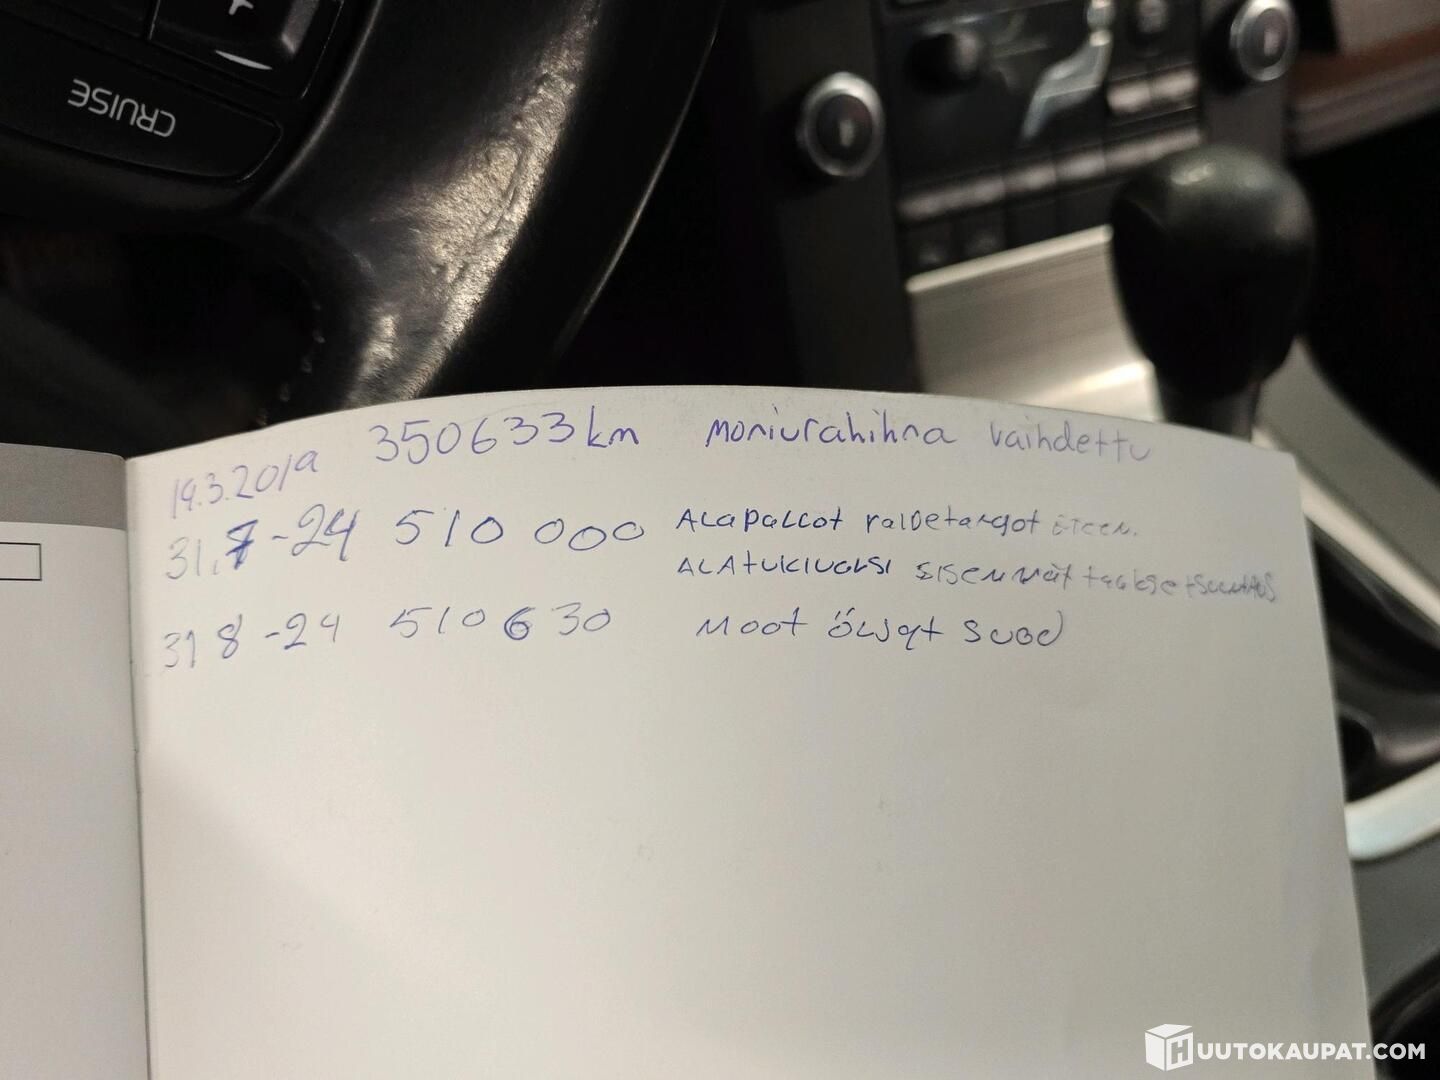 CRUISE
19.3.2019 350633km moniurahihna vaihdettu
31.7-24 510 000 ALAPALLOT raidetangot ETEEN.
ALAtukivarsi SISEMMÄT taakse
31 8 -24 510 630 MOOT ÖLJYt SUOD
HUUTOKAUPAT.COM